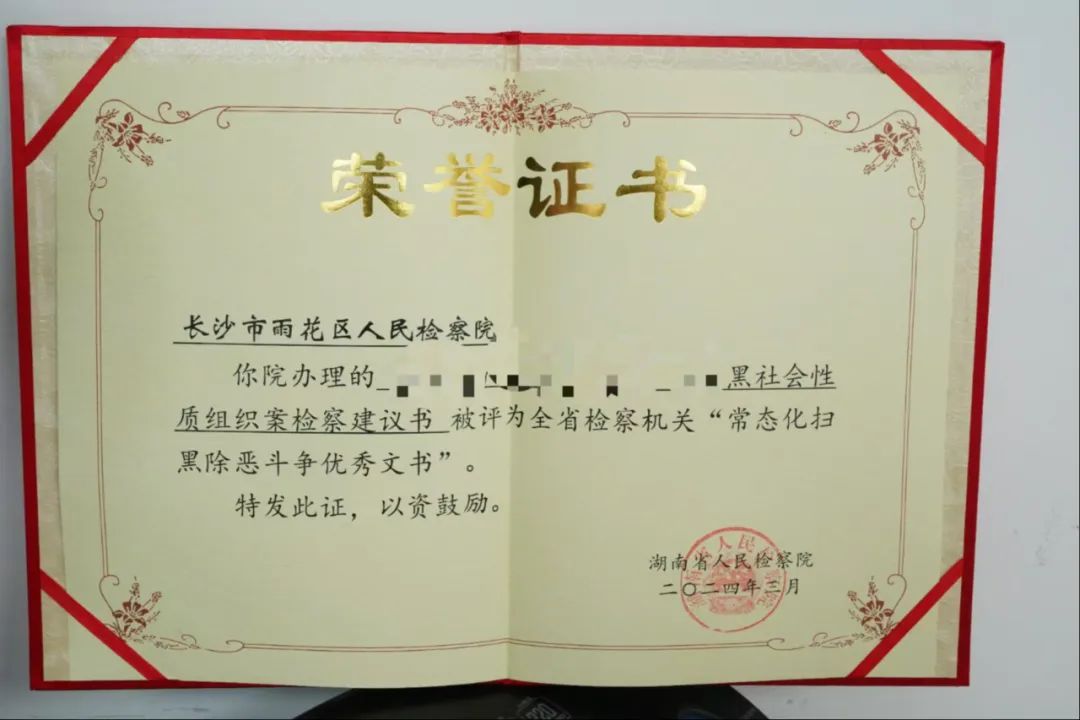 荣誉证书
长沙市雨花区人民检察院
你院办理的 黑社会性
质组织案检察建议书 被评为全省检察机关“常态化扫
黑除恶斗争优秀文书”。
特发此证，以资鼓励。
湖南省人民检察院
二〇二四年三月